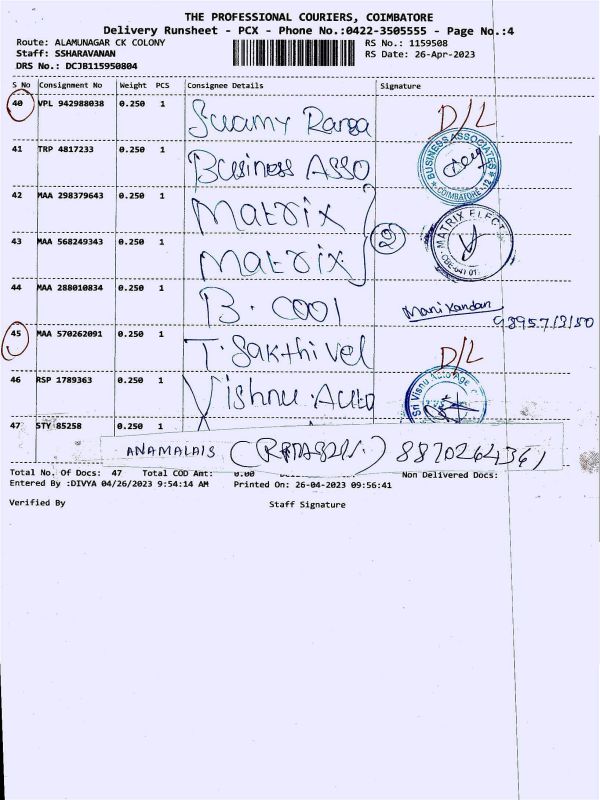 THE PROFESSIONAL COURIERS, COIMBATORE
Delivery Runsheet - PCX - Phone No.:0422-3505555 - Page No.:4
Route: ALAMUNAGAR CK COLONY RS No.: 1159508
Staff: SSHARAVANAN RS Date: 26-Apr-2023
DRS No.: DCJB115950804
S No Consignment No Weight PCS Consignee Details Signature
40 VPL 942988038 0.250 1 Swamy Ranga D/L
41 TRP 4817233 0.250 1 Business Asso BUSINESS ASSOCIATES COIMBATORE-12
42 MAA 298379643 0.250 1 Matrix
43 MAA 568249343 0.250 1 Matrix 2 MATRIX ELECT
44 MAA 288010834 0.250 1 B. cool Manikandan
45 MAA 570262091 0.250 1 T. Sakthivel D/L
46 RSP 1789363 0.250 1 Vishnu Auto Sri Visnu Auto Age
47 STY 85258 0.250 1
ANAMALAIS 8870264361
Total No. Of Docs: 47 Total COD Amt: 0.00 Non Delivered Docs:
Entered By :DIVYA 04/26/2023 9:54:14 AM Printed On: 26-04-2023 09:56:41
Verified By Staff Signature